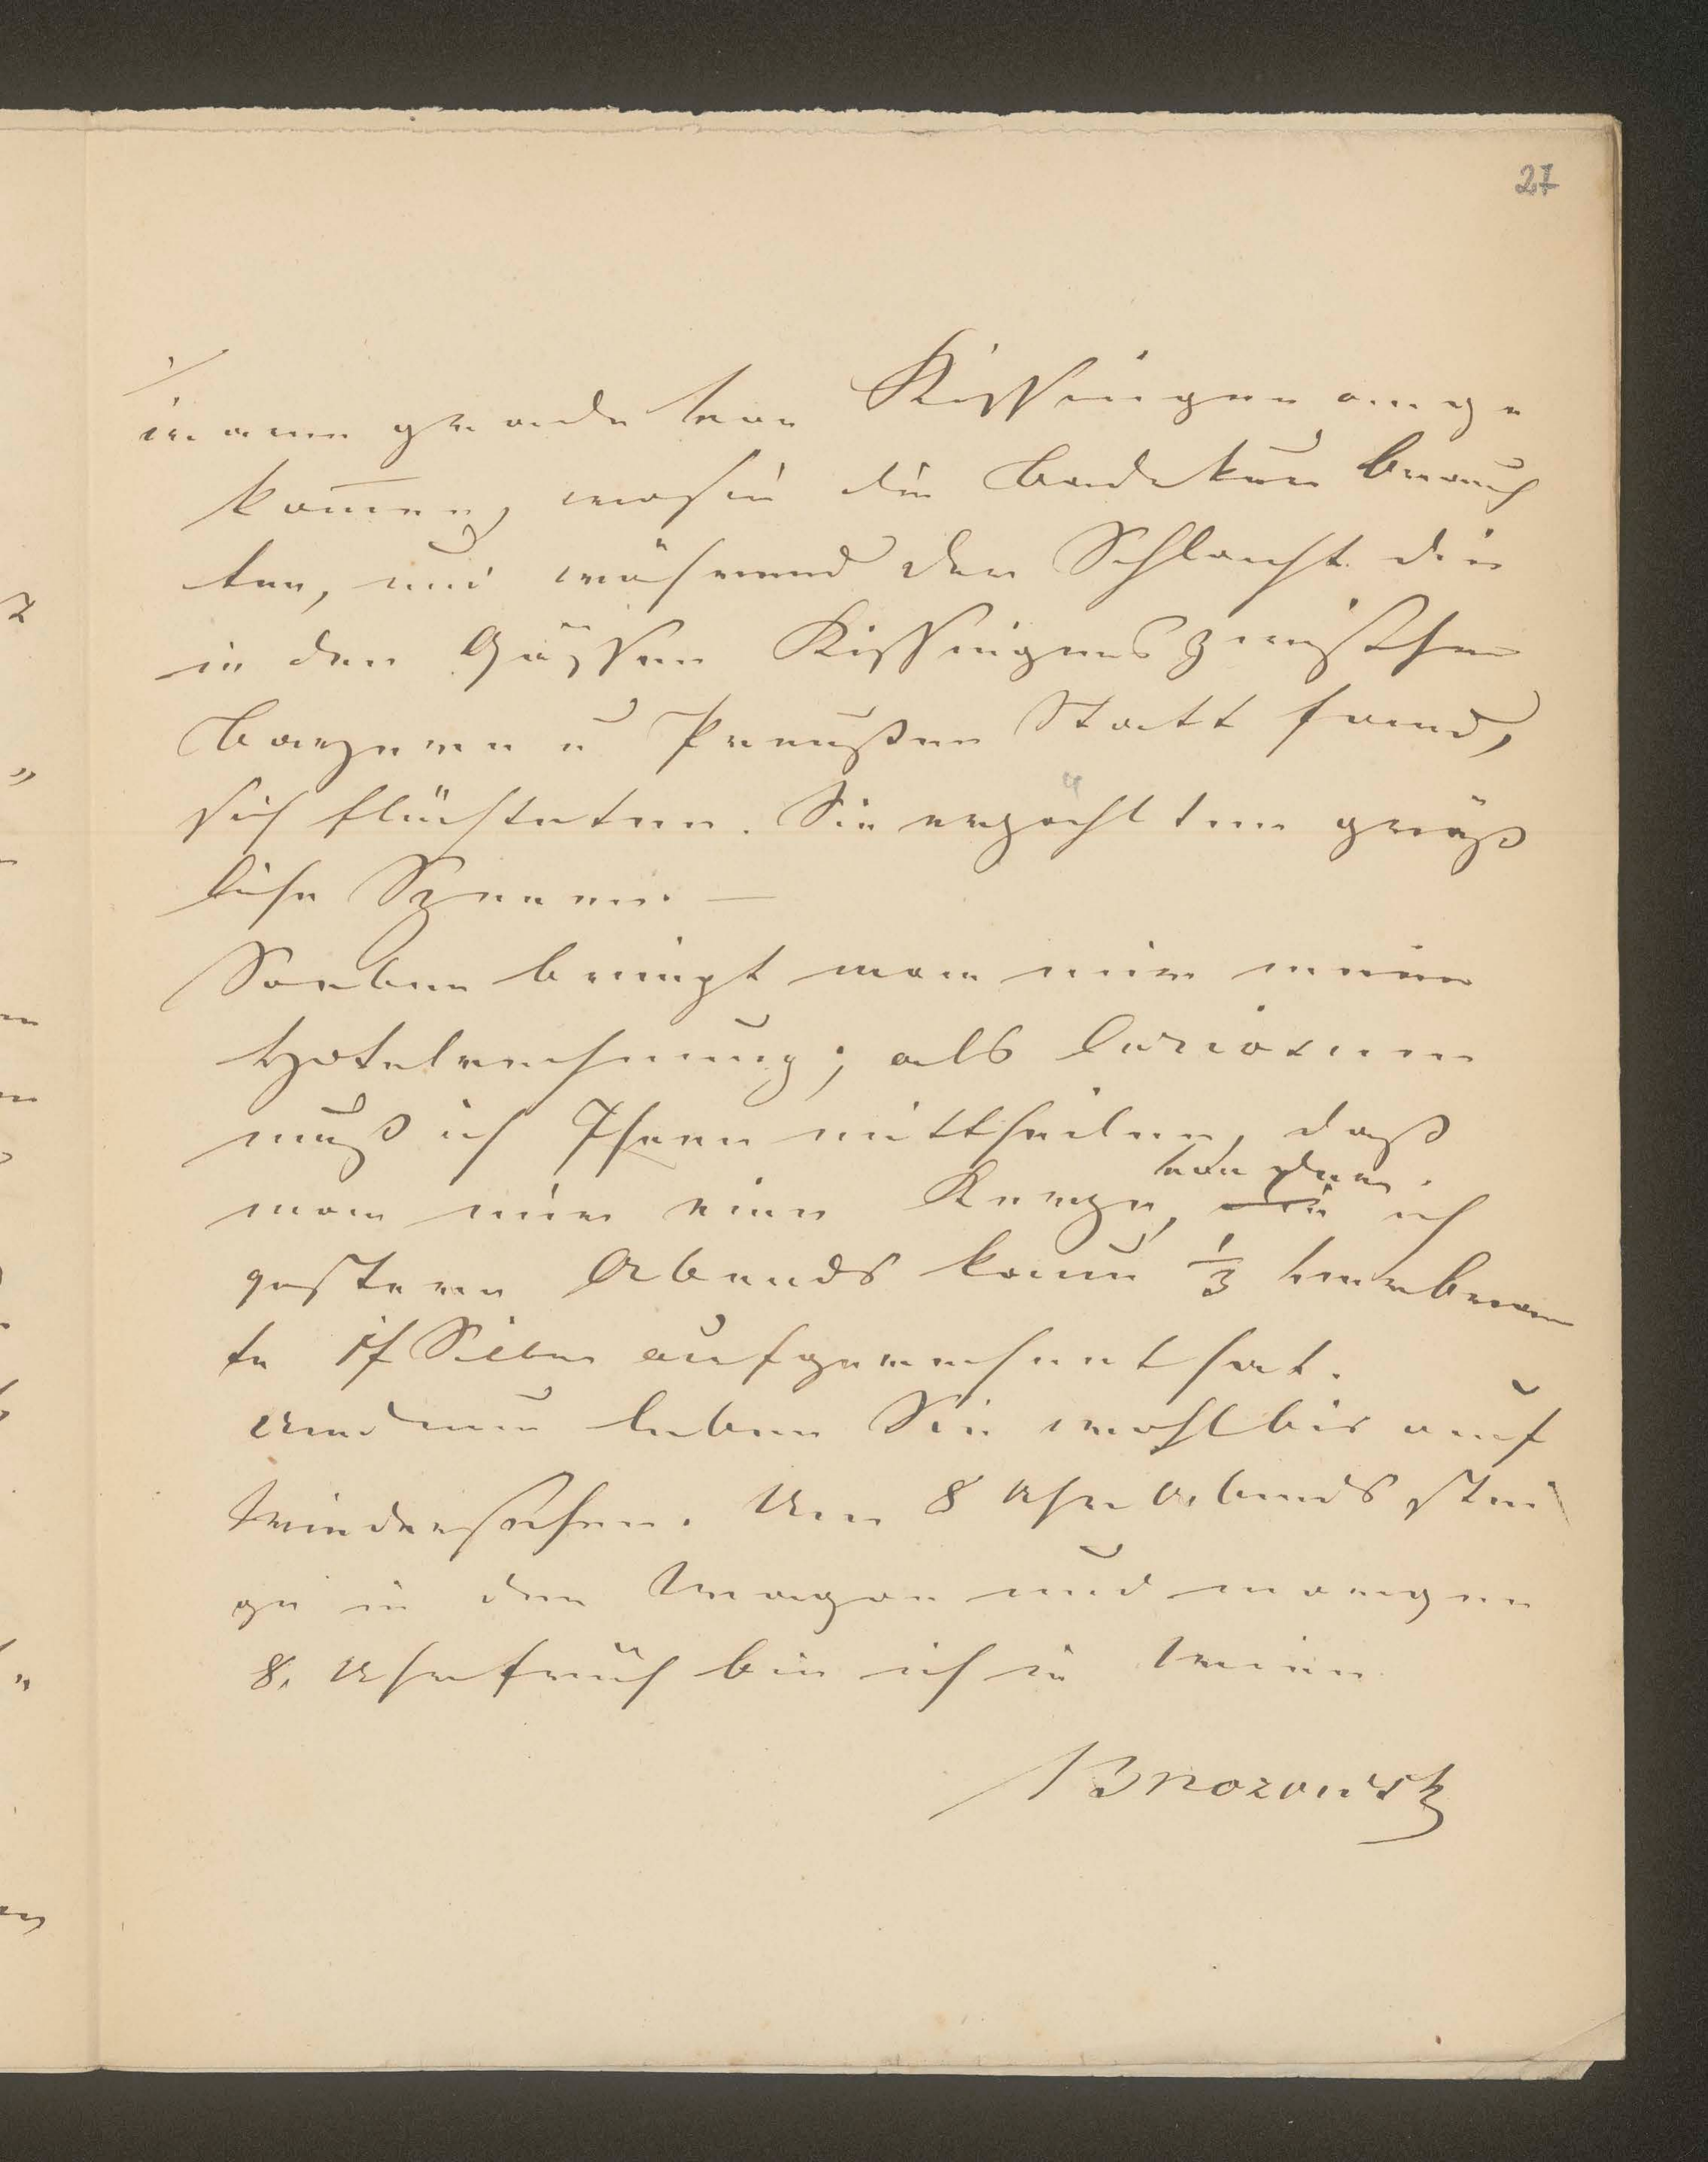 27
waren gerade von Kissingen ange
kom̅en, wo sie die Badekur brauch
ten, und während der Schlacht die
in den Gassen Kissingens zwischen
Bayern u Preußen Statt fand,
sich flüchteten. Sie erzählten gräß
liche Szenen. —
Soeben bringt man mir meine
Hotelrechnung; als Curiosum
muß ich Ihnen mittheilen, daß
von der
man mir eine Kerze, die ich
gestern Abends kaum 1/3 verbrann
te 1f Silber aufgerechnet hat.
Und nun leben Sie wohl bis auf
Wiedersehen. Um 8 Uhr Abends stei
ge in den Wagon und morgen
8. Uhr früh bin ich in Wien